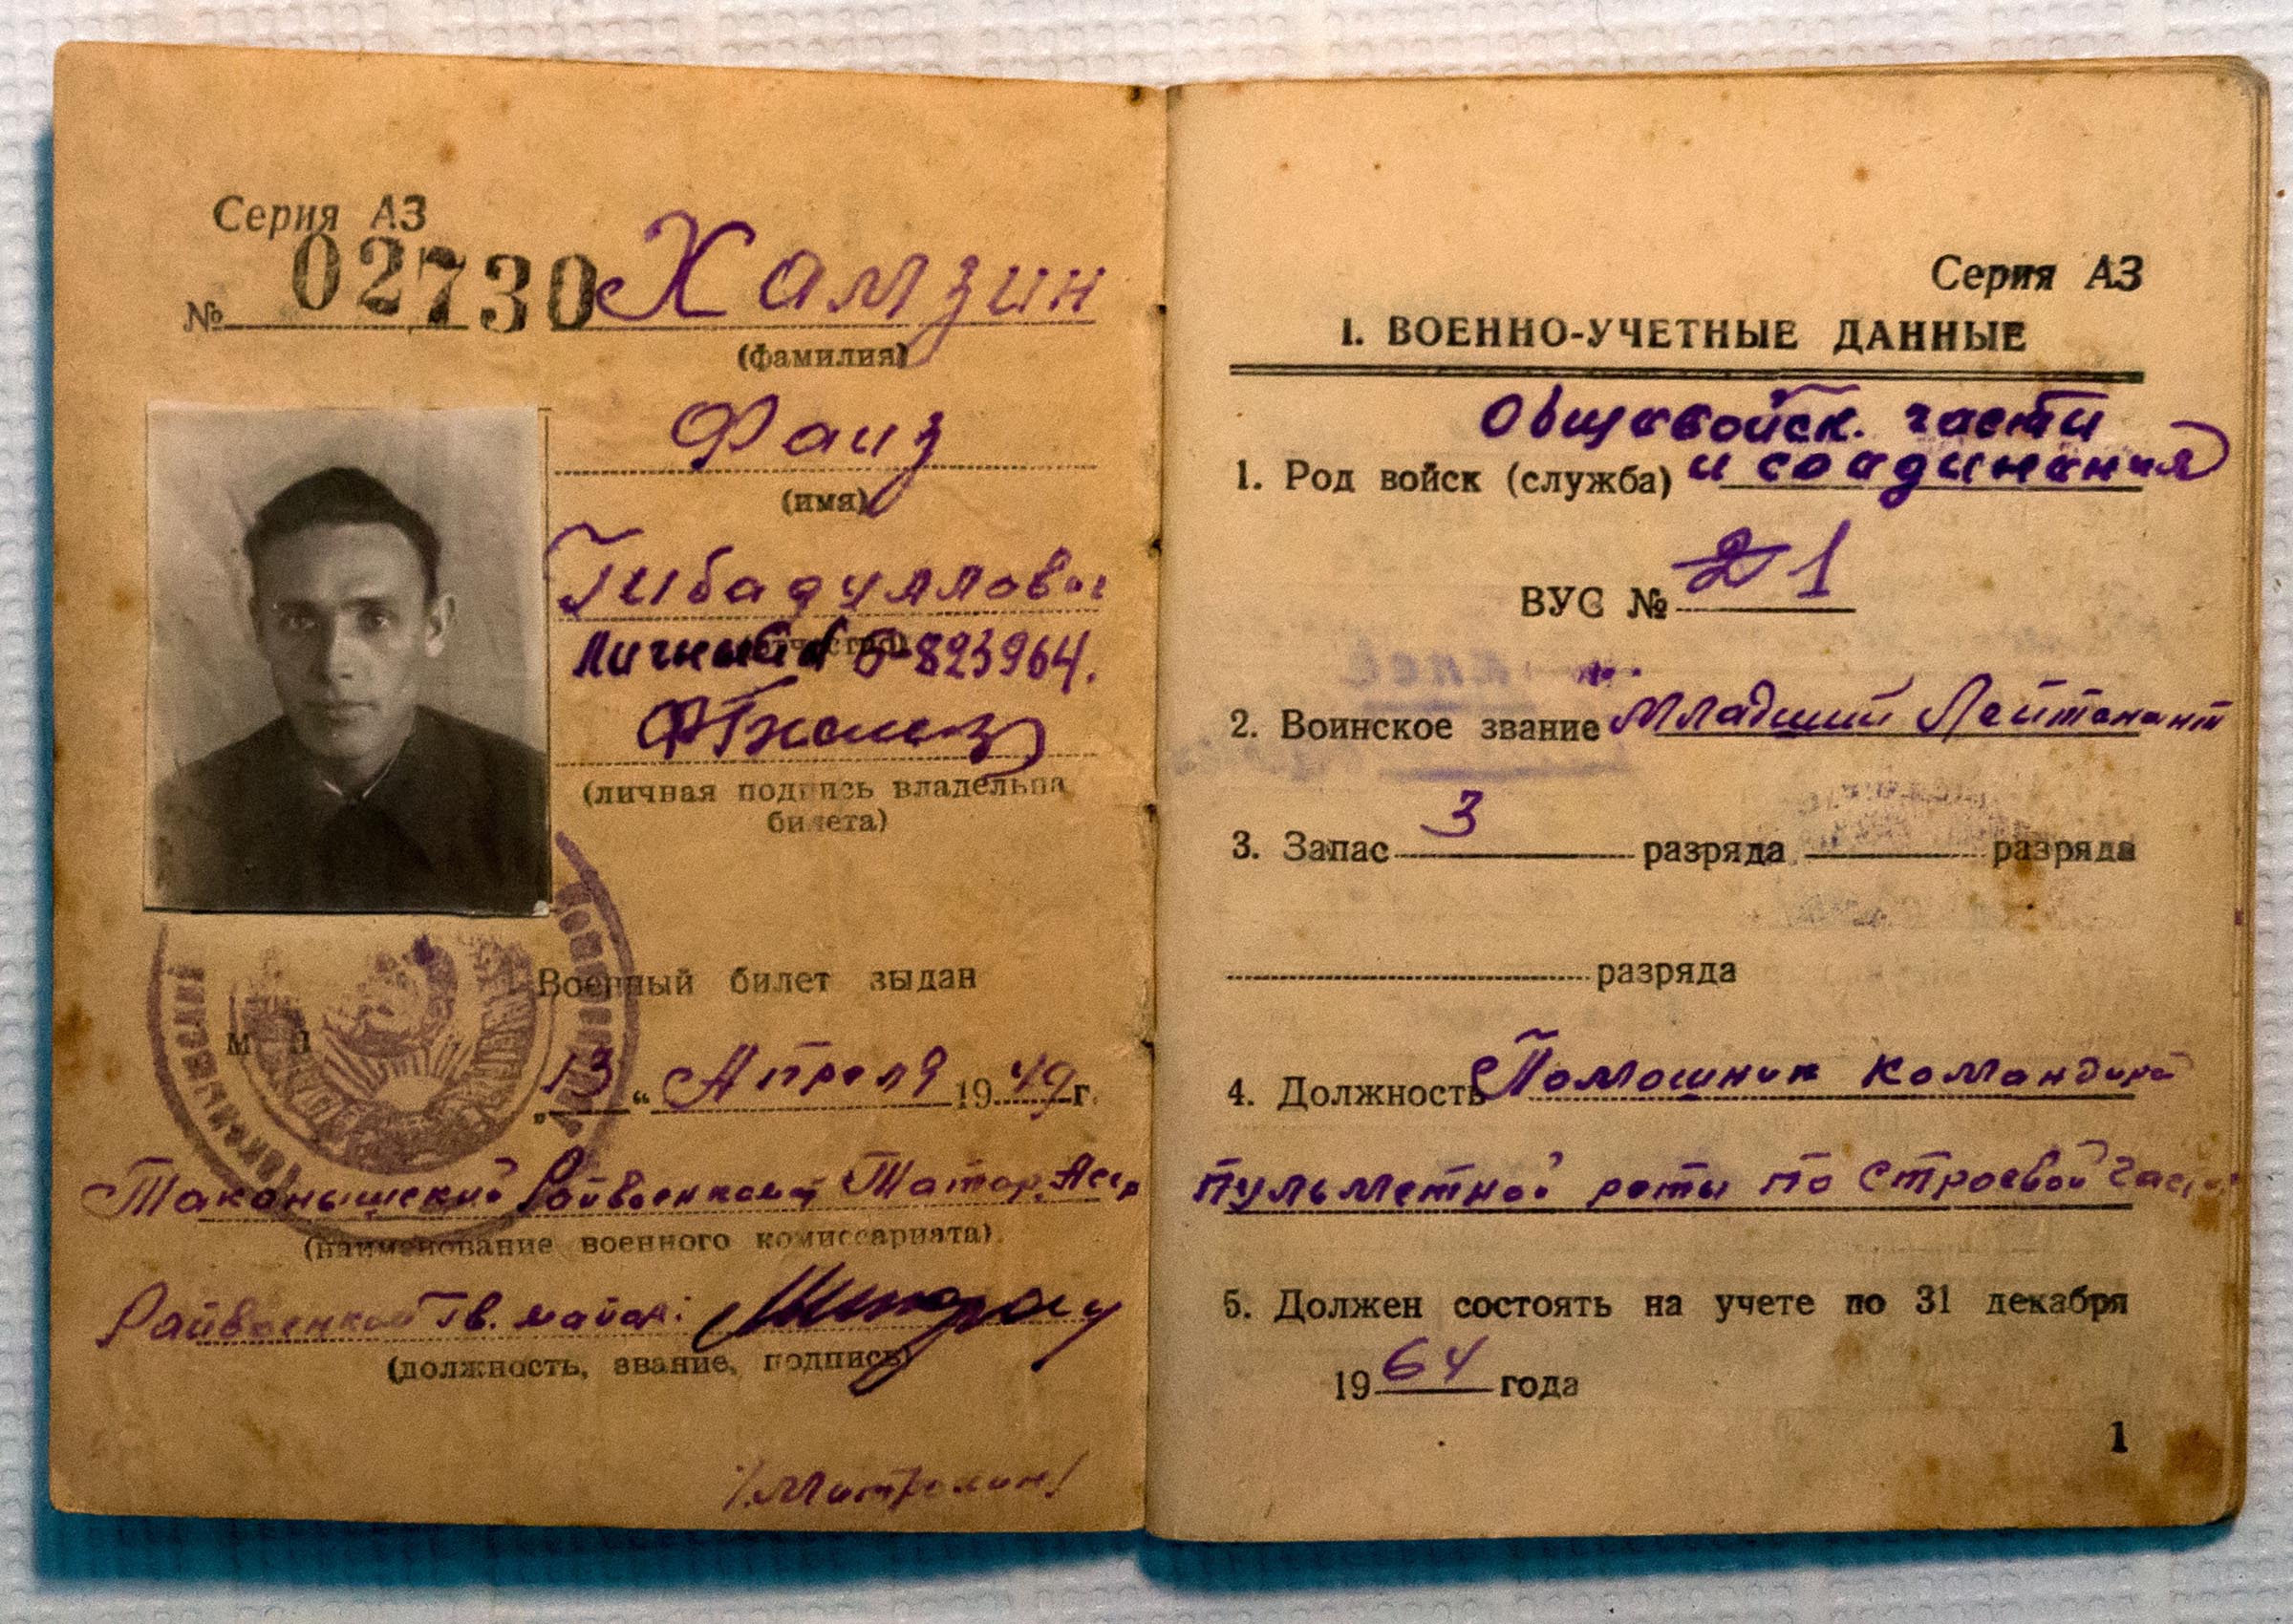 Серия АЗ
№ 02730 Хамзин
(фамилия)
Фаиз
(имя)
Гибадуллович
Личный № О-823964.
(личная подпись владельца
билета)
Военный билет выдан
М П
„13“ Апреля 1949г.
Таканышский Райвоенкомат Татар. Асср
(наименование военного комиссариата)
Райвоенком Гв. майор:
(должность, звание, подпись)
/Митрохин/
Серия АЗ
I. ВОЕННО-УЧЕТНЫЕ ДАННЫЕ
Общевойск. части
1. Род войск (служба) и соединения
ВУС № 1
2. Воинское звание Младший Лейтенант
3. Запас 3 разряда разряда
разряда
4. Должность Помошник командира
пульметной роты по строевой части
5. Должен состоять на учете по 31 декабря
1964 года
1